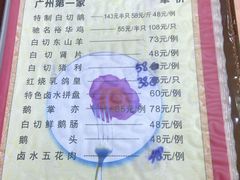 广州第一家 单价
特制白切鹅 143元/半只 58元/斤 48元/例
驰名裕华鸡 55元/半只 108元/只
白切东山羊 73元/例
白切肾片 48元/例
白切猪利 58元/例
红烧乳鸽皇 38元/只
特色卤水拼盘 60元/例
鹅掌亦 85元/例 78元/斤
白切鲜鹅肠 48元/例
鹅头 48元/例
卤水五花肉 48元/例